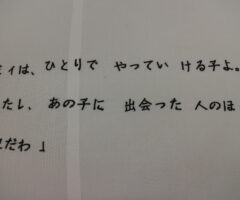 ミィは、ひとりで やってい ける子よ。
たし、あの子に 出会った 人のほ
だわ」